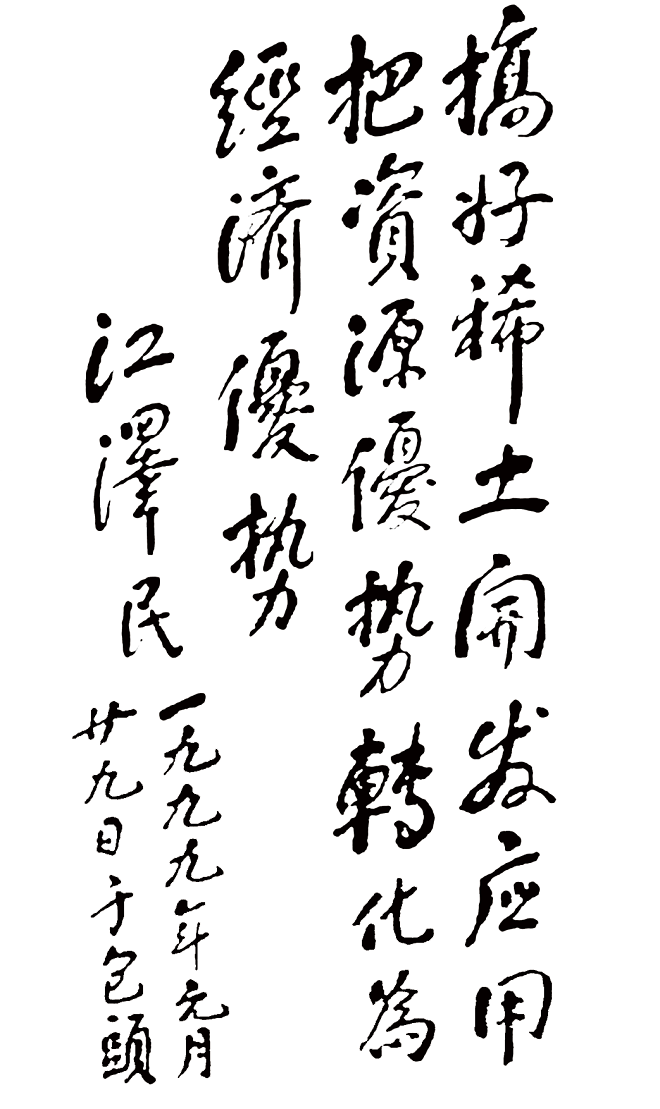 搞好稀土開发应用
把資源優勢轉化為
經濟優勢
江澤民
一九九九年元月
廿九日于包頭